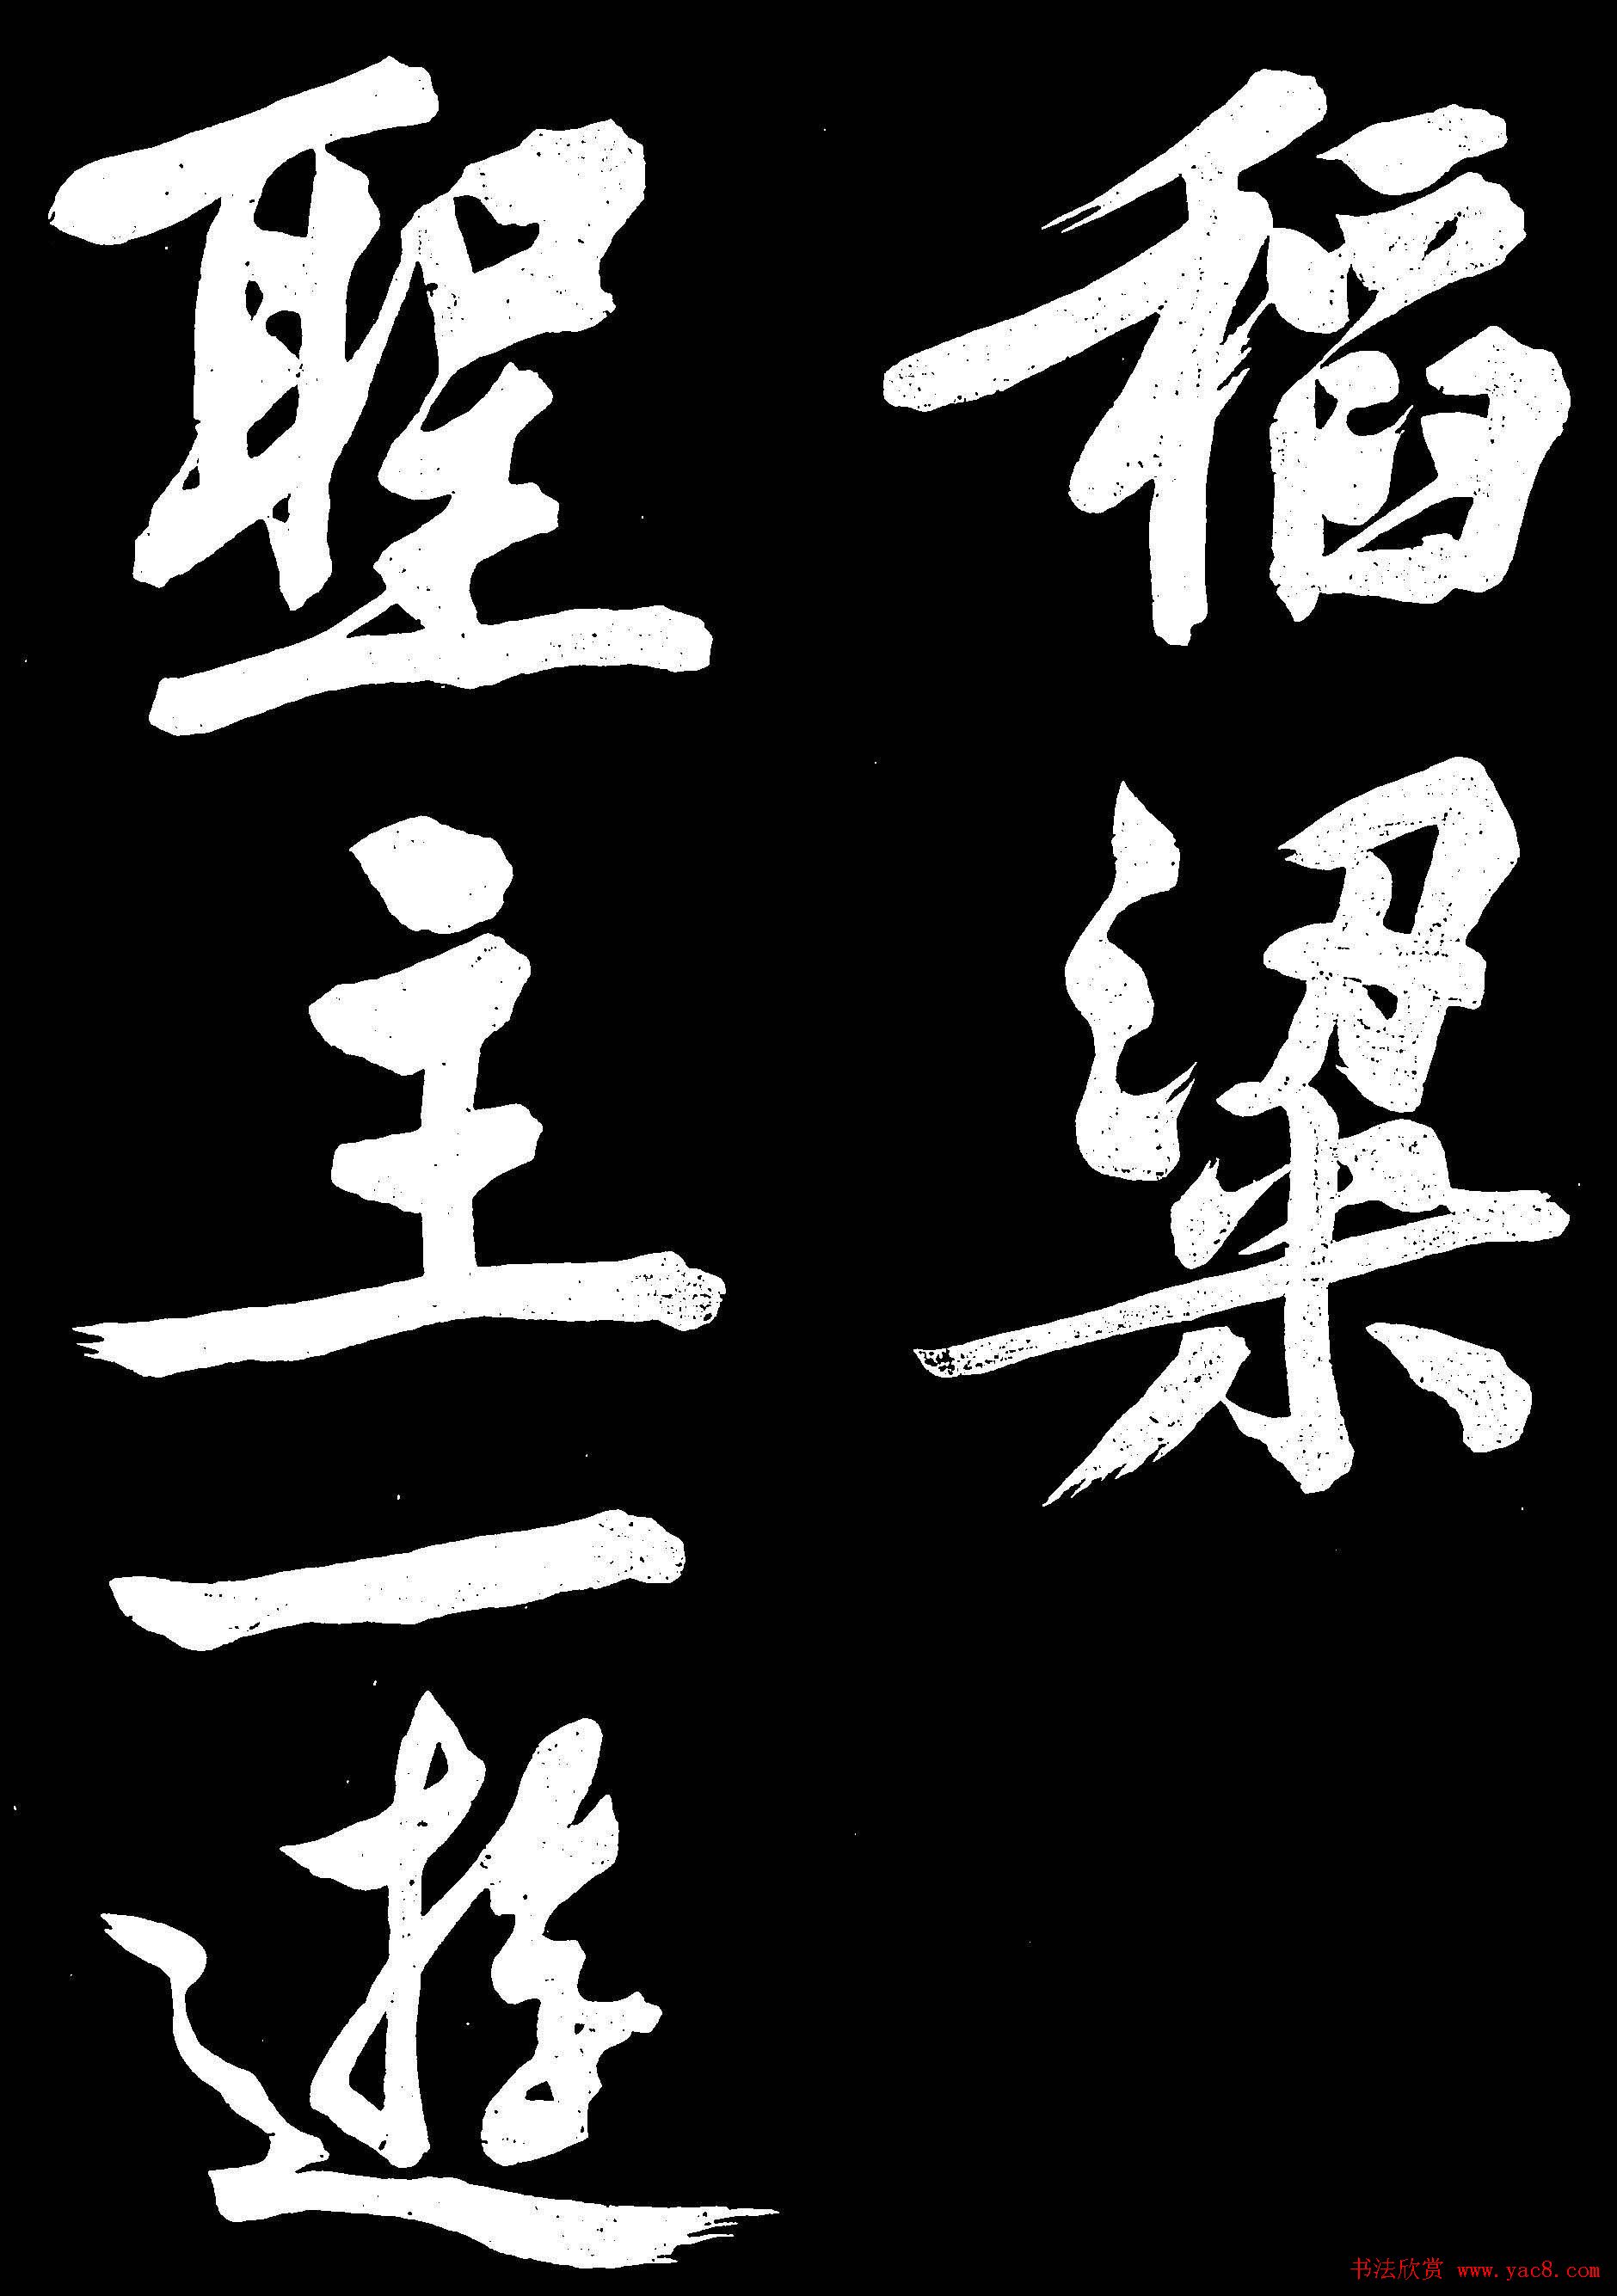 稻梁
聖主一遊
书法欣赏 www.yac8.com